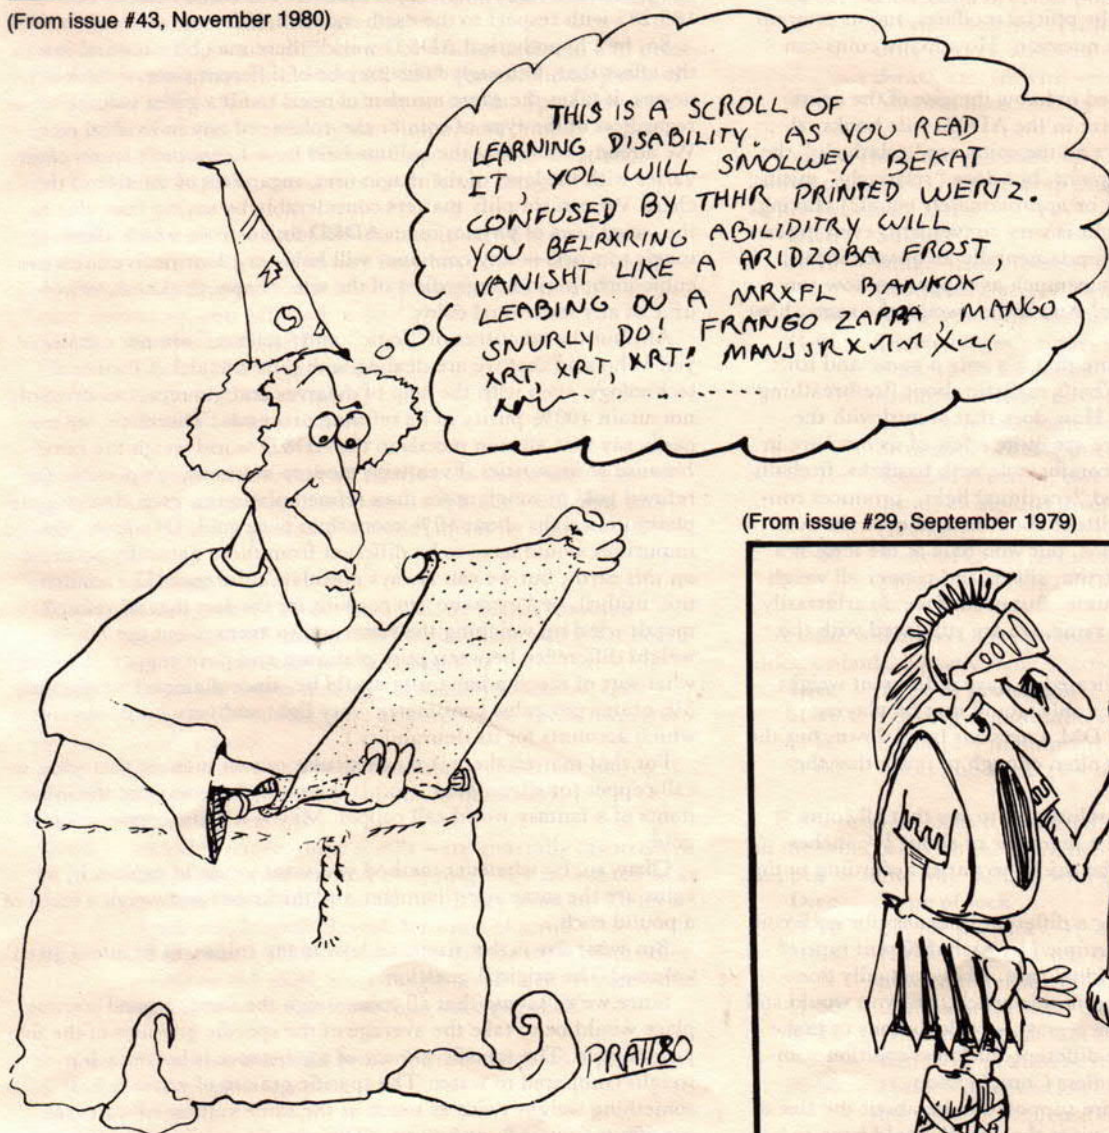 (From issue #43, November 1980)
THIS IS A SCROLL OF
LEARNING DISABILITY. AS YOU READ
IT, YOL WILL SMOLWEY BEKAT
CONFUSED BY THHR PRINTED WERTZ.
YOL BELRXRING ABILIDITRY WILL
VANISHT LIKE A ARIDZOBA FROST,
LEABING OU A MRXFL YANKON
SNURLY DO! FRANGO ZAPPA, MANGO
XRT, XRT, XRT!
PRATT80
(From issue #29, September 1979)